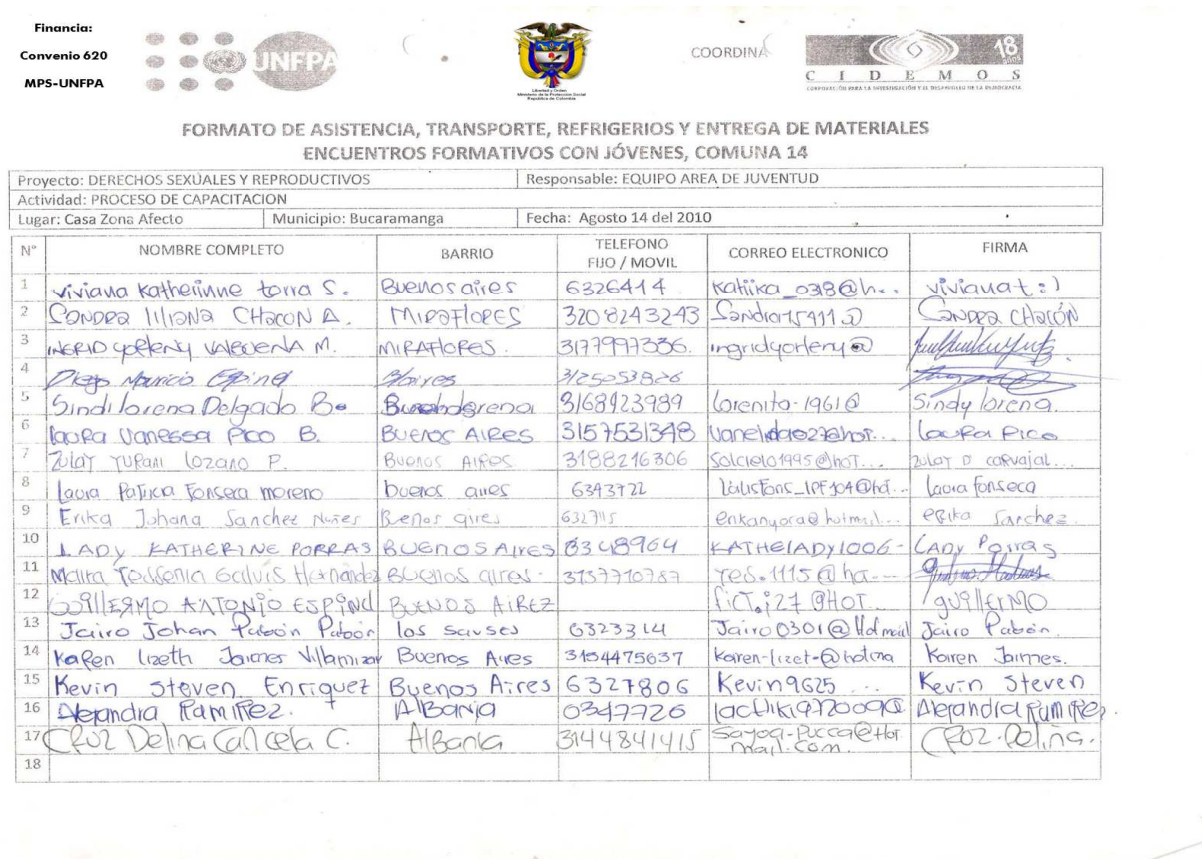 Financia:
Convenio 620
MPS-UNFPA
UNFPA
Libertad y Orden
Ministerio de la Protección Social
República de Colombia
COORDINA
18
C I D E M O S
CORPORACIÓN PARA LA INVESTIGACIÓN Y EL DESARROLLO DE LA DEMOCRACIA
FORMATO DE ASISTENCIA, TRANSPORTE, REFRIGERIOS Y ENTREGA DE MATERIALES
ENCUENTROS FORMATIVOS CON JÓVENES, COMUNA 14
Proyecto: DERECHOS SEXUALES Y REPRODUCTIVOS Responsable: EQUIPO AREA DE JUVENTUD
Actividad: PROCESO DE CAPACITACION
Lugar: Casa Zona Afecto Municipio: Bucaramanga Fecha: Agosto 14 del 2010
N° NOMBRE COMPLETO BARRIO TELEFONO FIJO / MOVIL CORREO ELECTRONICO FIRMA
1 Viviana Katherinne torra S. Buenos aires 6326414 Katiika_0318@h.. vivianat:)
2 SANDRA lIliANA CHACON A. MIRAFLORES 3208243243 Sandra15411@ SANDRA CHACÓN
3 INGRID yorleny VALBUENA M. MIRAFLORES. 3177997336. ingridyorleny@
4 Diego Mauricio Espinel B/aires 3125053826
5 Sindi lorena Delgado B. 3168923989 lorenita-1961@ Sindy lorena.
6 laura Vanessa PICO B. BUENOS AIRES 3157531348 laura Pico
7 Zulay YURANI lozano P. BUENOS AIRES 3188216306 Solcielo1995@hoT.... zulay D carvajal...
8 laura Patricia Fonseca moreno buenos aires 6343722 laura fonseca
9 Erika Johana Sanchez Nuñes Benos aires 6327115 erikanyora@hotmail... erika Sanchez
10 LADY KATHERINE PORRAS BUENOS AIRES 6348964 KATHELADY1006- LADY Porras
11 Maira Yessenia Galvis Hernandez Buenos aires. 3137710787 yes.1115@ho.---
12 GUILLERMO ANTONIO ESPINEL BUENOS AIREZ FICT.i27@HOT GUILLERMO
13 Jairo Johan Pabón Pabón los sauses 6323314 Jairo0301@Hotmail Jairo Pabón.
14 Karen lizeth Jaimes Villamizar Buenos Aires 3154475637 Karen-lizet-@hotma Karen Jaimes.
15 Kevin Steven Enriquez Buenos Aires 6327806 Kevin9625 ... Kevin Steven
16 Alejandra Ramirez. AlBania 0347726 Alejandra Ramirez
17 CRUZ Delina Cancela C. AlBania 3144841415 Sayoa-Pucca@Hotmail.com CRUZ Delina.
18